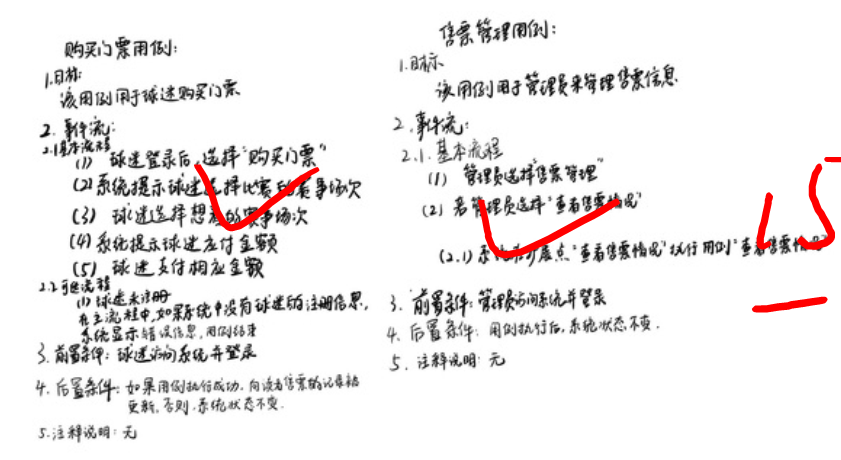 购买门票用例:
1.目标:
该用例用于球迷购买门票
2. 事件流:
2.1基本流程
(1) 球迷登录后,选择"购买门票"
(2)系统提示球迷选择比赛的赛事场次
(3) 球迷选择想看的赛事场次
(4)系统提示球迷应付金额
(5) 球迷支付相应金额
2.2可选流程
(1)球迷未注册
在主流程中,如果系统中没有球迷的注册信息,
系统显示错误信息,用例结束
3. 前置条件: 球迷访问系统并登录
4. 后置条件: 如果用例执行成功,向该售票的记录被
更新,否则,系统状态不变.
5.注释说明: 无
售票管理用例:
1.目标
该用例用于管理员来管理售票信息
2.事件流:
2.1.基本流程
(1) 管理员选择"售票管理"
(2) 若管理员选择"查看售票情况"
(2.1)系统 扩展点"查看售票情况"执行用例"查看售票情况"
3. 前置条件: 管理员访问系统并登录
4. 后置条件: 用例执行后,系统状态不变.
5. 注释说明: 无
15